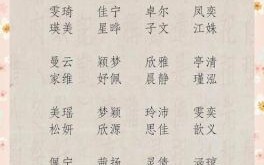 雯琦 佳宁 卓尔 凤奕
瑛美 星晔 子文 江姝
曼云 颖梦 欣雅 亭清
家维 妤佩 晨静 瑾泓
美瑶 梦颖 玲沛 雯奕
松妍 欣源 思佳 歆义